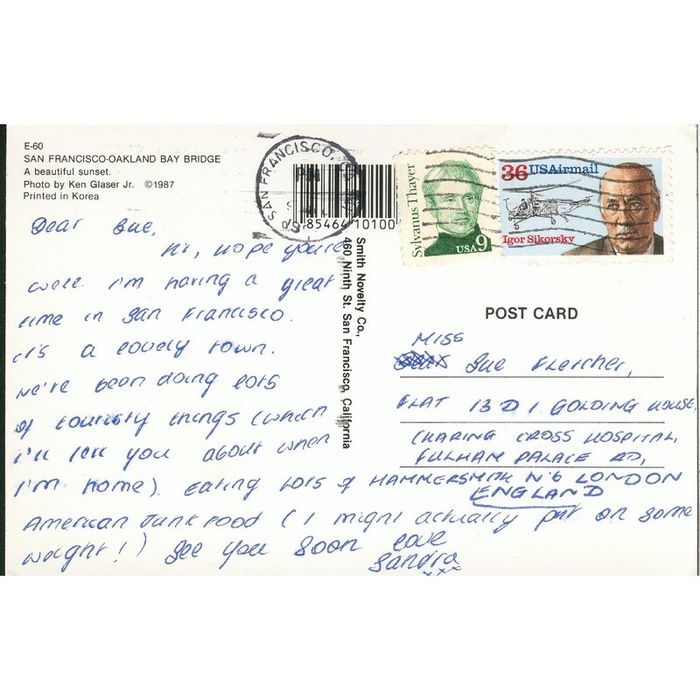 E-60
SAN FRANCISCO-OAKLAND BAY BRIDGE
A beautiful sunset.
Photo by Ken Glaser Jr. ©1987
Printed in Korea
SAN FRANCISCO,
PM
85464 10100
Sylvanus Thayer
USA 9
36 USAirmail
Igor Sikorsky
Smith Novelty Co.,
460 Ninth St. San Francisco, California
POST CARD
Dear Sue,
Hi, hope you're
well. I'm having a great
time in San Francisco.
it's a lovely town.
we've been doing lots
of touristy things (which
i'll tell you about when
I'm home). Eating lots of
American Junk food (I might actually put on some
weight!) See you soon
love
Sandra
xxx
MISS
Sue Fletcher,
FLAT 13D 1 GOLDING HOUSE,
CHARING CROSS HOSPITAL,
FULHAM PALACE RD,
HAMMERSMITH N°6 LONDON
ENGLAND